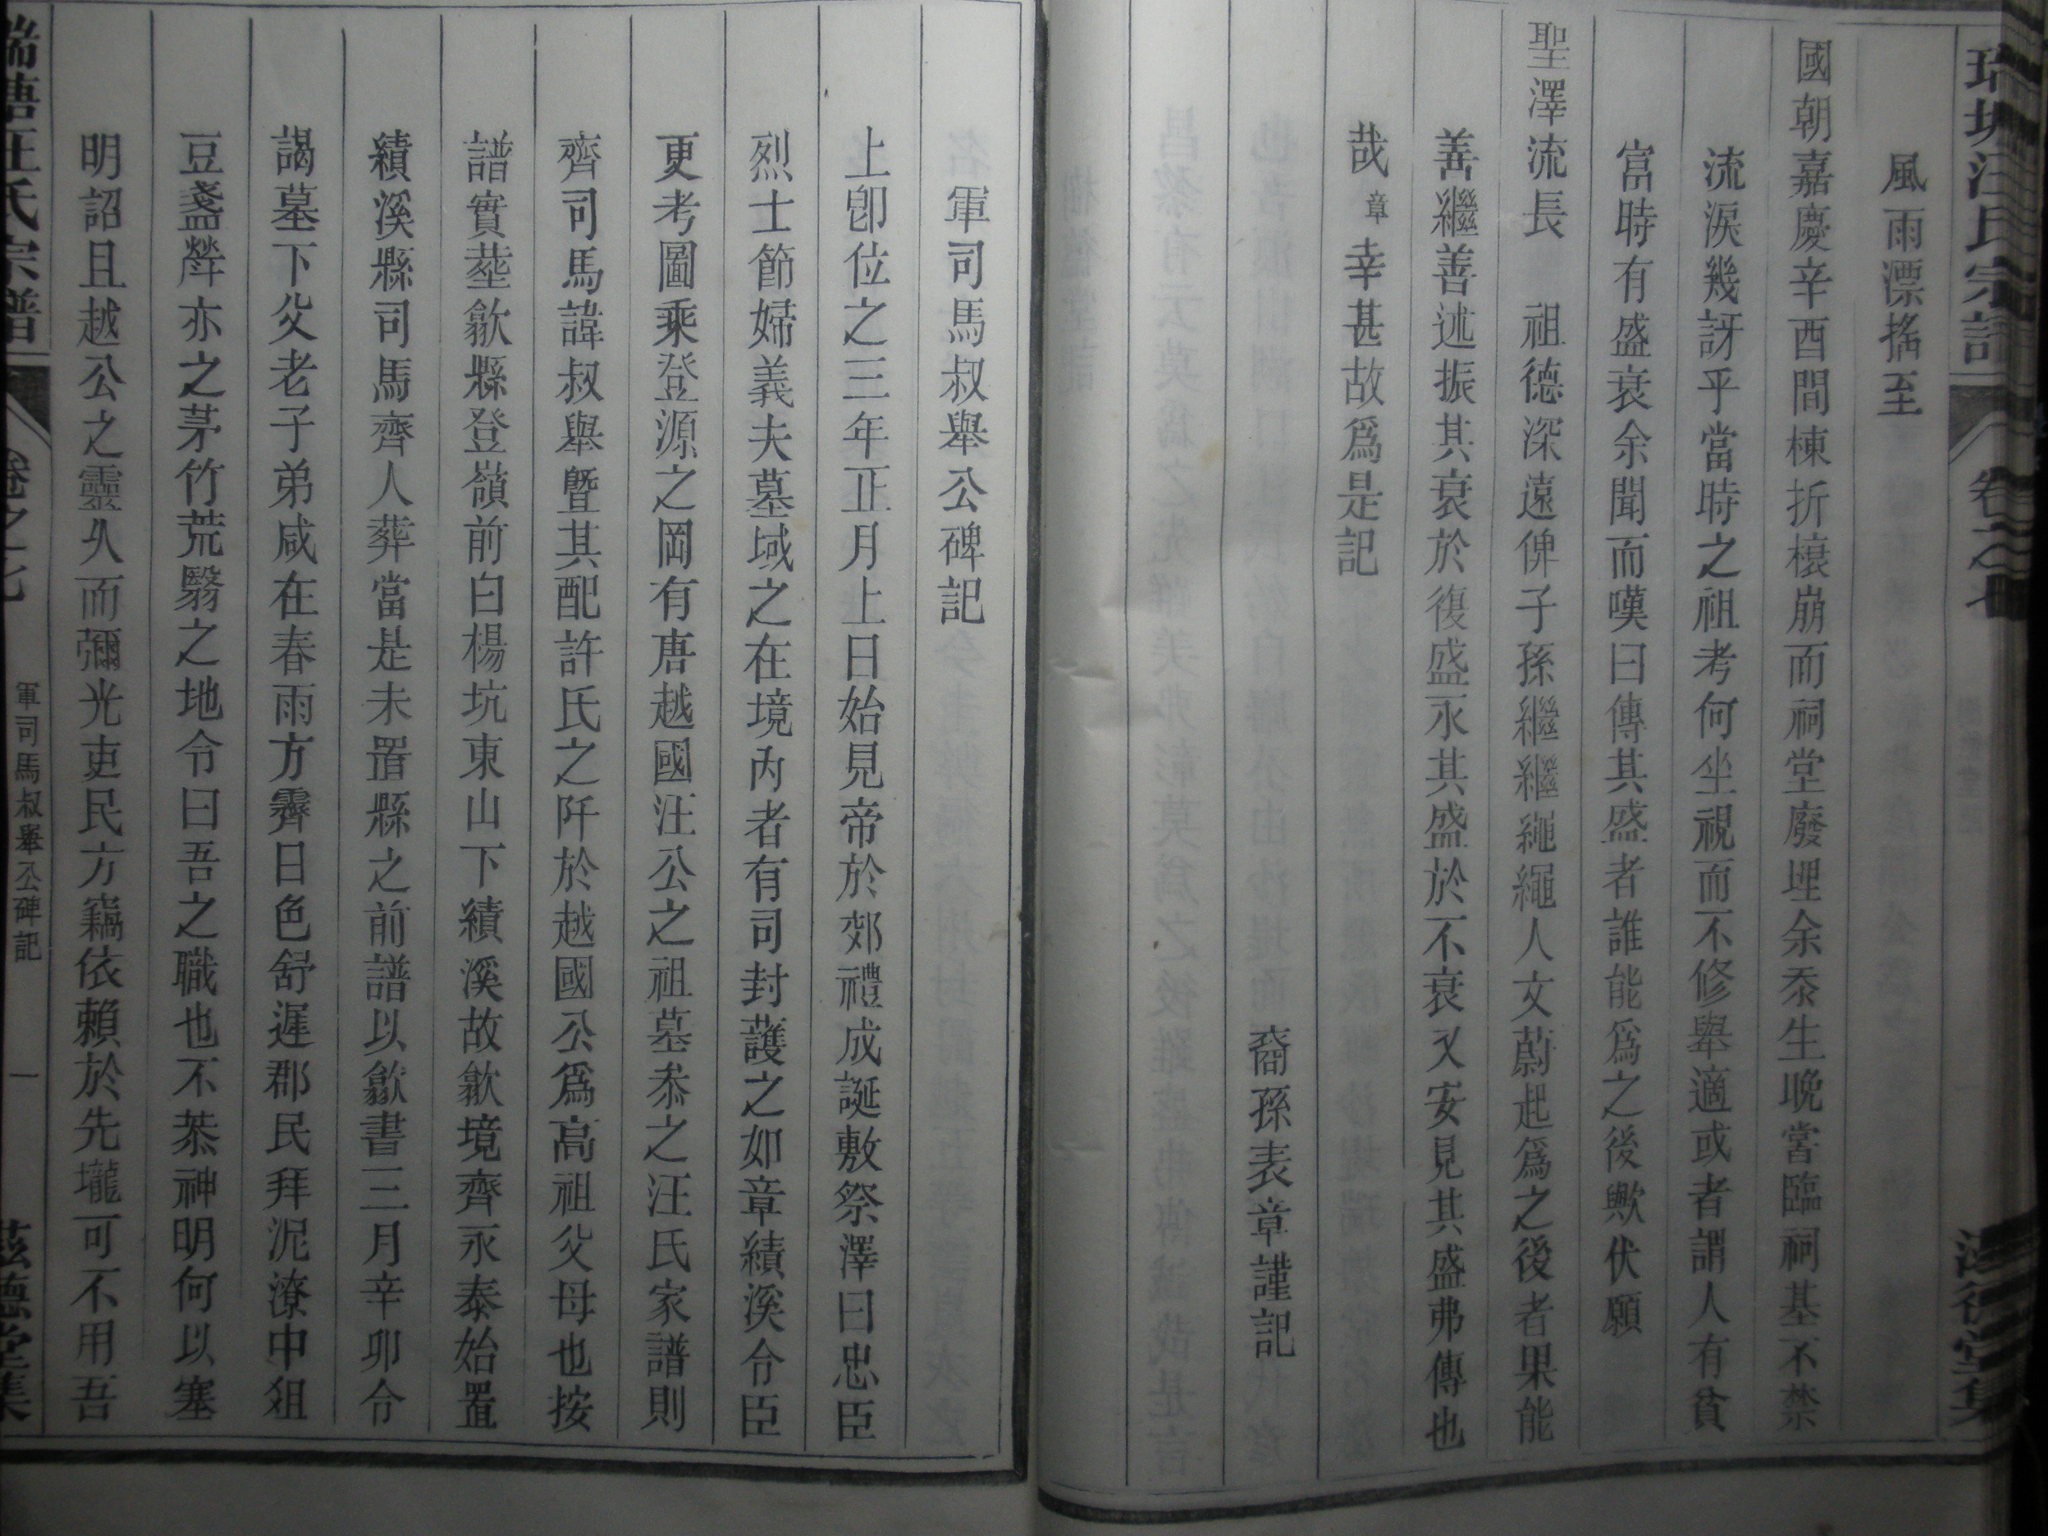 汪氏宗譜
卷之七
風雨漂搖至
國朝嘉慶辛酉間棟折榱崩而祠堂廢埋余忝生晚當臨祠基不禁
流淚幾訝乎當時之祖考何坐視而不修舉適或者謂人有貧
富時有盛衰余聞而嘆曰傳其盛者誰能爲之後歟伏願
聖澤流長　祖德深遠俾子孫繼繼繩繩人文蔚起爲之後者果能
善繼善述振其衰於復盛永其盛於不衰又安見其盛弗傳也
哉章幸甚故爲是記
裔孫表章謹記
軍司馬叔舉公碑記
上卽位之三年正月上日始見帝於郊禮成誕敷祭澤曰忠臣
烈士節婦義夫墓域之在境內者有司封護之如章績溪令臣
更考圖乘登源之岡有唐越國汪公之祖墓叅之汪氏家譜則
齊司馬諱叔舉暨其配許氏之阡於越國公爲高祖父母也按
譜實塟歙縣登嶺前白楊坑東山下績溪故歙境齊永泰始置
績溪縣司馬齊人葬當是未置縣之前譜以歙書三月辛卯令
謁墓下父老子弟咸在春雨方霽日色舒遲郡民拜泥潦中俎
豆盞斝亦之茅竹荒翳之地令曰吾之職也不恭神明何以塞
明詔且越公之靈久而彌光吏民方竊依賴於先壠可不用吾
瑞塘汪氏宗譜
卷之七
軍司馬叔舉公碑記
一
德堂集